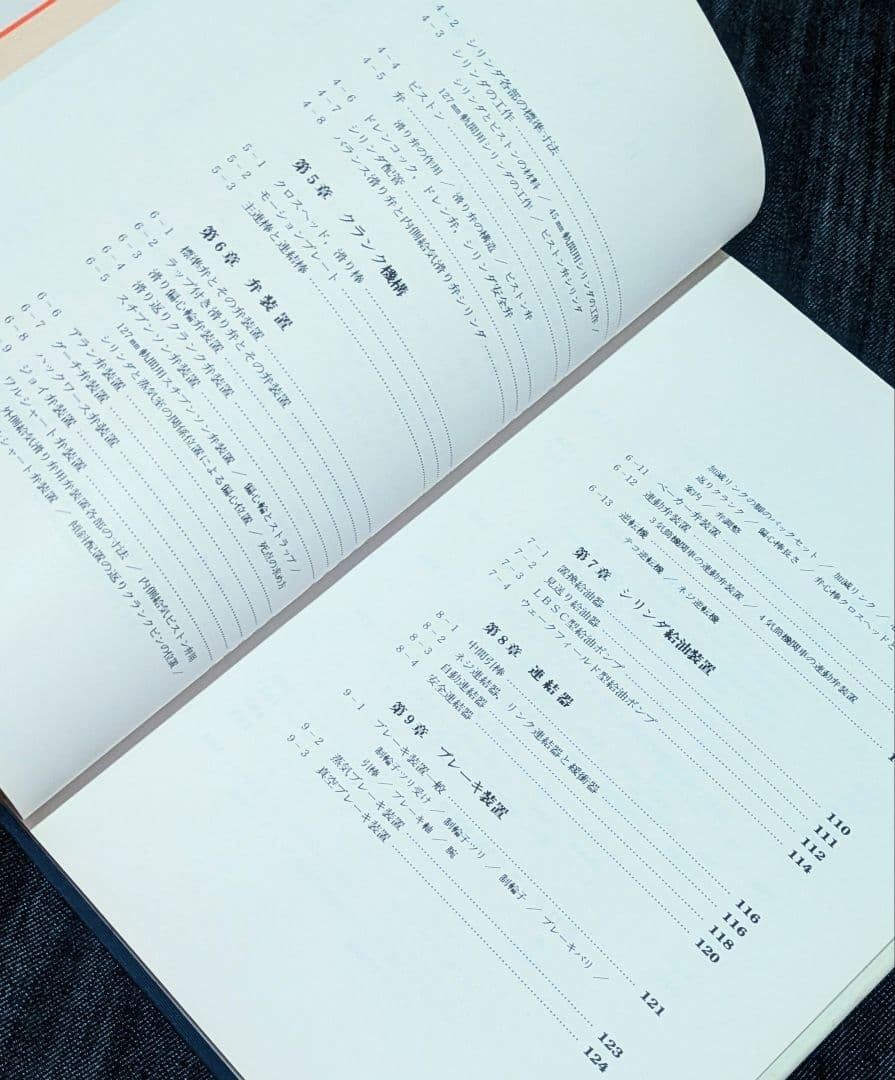 4-2 シリンダ各部の標準寸法
4-3 シリンダの工作
シリンダとピストンの材料 / 45㎜軌間用シリンダの工作 /
127㎜軌間用シリンダの工作 / ピストン弁シリンダ
4-4 ピストン
4-5 弁
滑り弁の作用 / 滑り弁の構造 / ピストン弁
4-6 ドレンコック、ドレン弁、シリンダ安全弁
4-7 シリンダ配管
4-8 バランス滑り弁と内側給気滑り弁シリンダ
第5章 クランク機構
5-1 クロスヘッド、滑り棒
5-2 モーションプレート
5-3 主連棒と連結棒
第6章 弁装置
6-1 標準弁とその弁装置
6-2 ラップ付き滑り弁とその弁装置
6-3 滑り偏心輪弁装置
6-4 滑り返りクランク弁装置
6-5 スチブンソン弁装置
127㎜軌間用スチブンソン弁装置 / 偏心輪とストラップ /
シリンダと蒸気室の関係位置による偏心位置 / 死点の求め方
6-6 アラン弁装置
6-7 グーチ弁装置
6-8 ハックワース弁装置
9 ジョイ弁装置
ワルシャート弁装置
外側給気滑り弁用弁装置各部の寸法 / 内側給気ピストン弁用
シャート弁装置 / 傾斜配置の返りクランクピンの位置 /
加減リンクの脚のバックセット / 加減リンク /
返りクランク / 偏心棒長さ / 弁心棒クロスヘッドと
案内 / 弁調整
6-11 ベーカー弁装置
6-12 連動弁装置
3気筒機関車の連動弁装置 / 4気筒機関車の連動弁装置
6-13 逆転機
テコ逆転機 / ネジ逆転機
第7章 シリンダ給油装置
7-1 置換給油器 110
7-2 見送り給油器 111
7-3 LBSC型給油ポンプ 112
7-4 ウェークフィールド型給油ポンプ 114
第8章 連結器
8-1 中間引棒 116
8-2 ネジ連結器、リンク連結器と緩衝器 116
8-3 自動連結器 118
8-4 安全連結器 120
第9章 ブレーキ装置
9-1 ブレーキ装置一般 121
制輪子ツリ受け / 制輪子ツリ / 制輪子 / ブレーキバリ /
引棒 / ブレーキ軸 / 腕
9-2 蒸気ブレーキ装置 123
9-3 真空ブレーキ装置 124